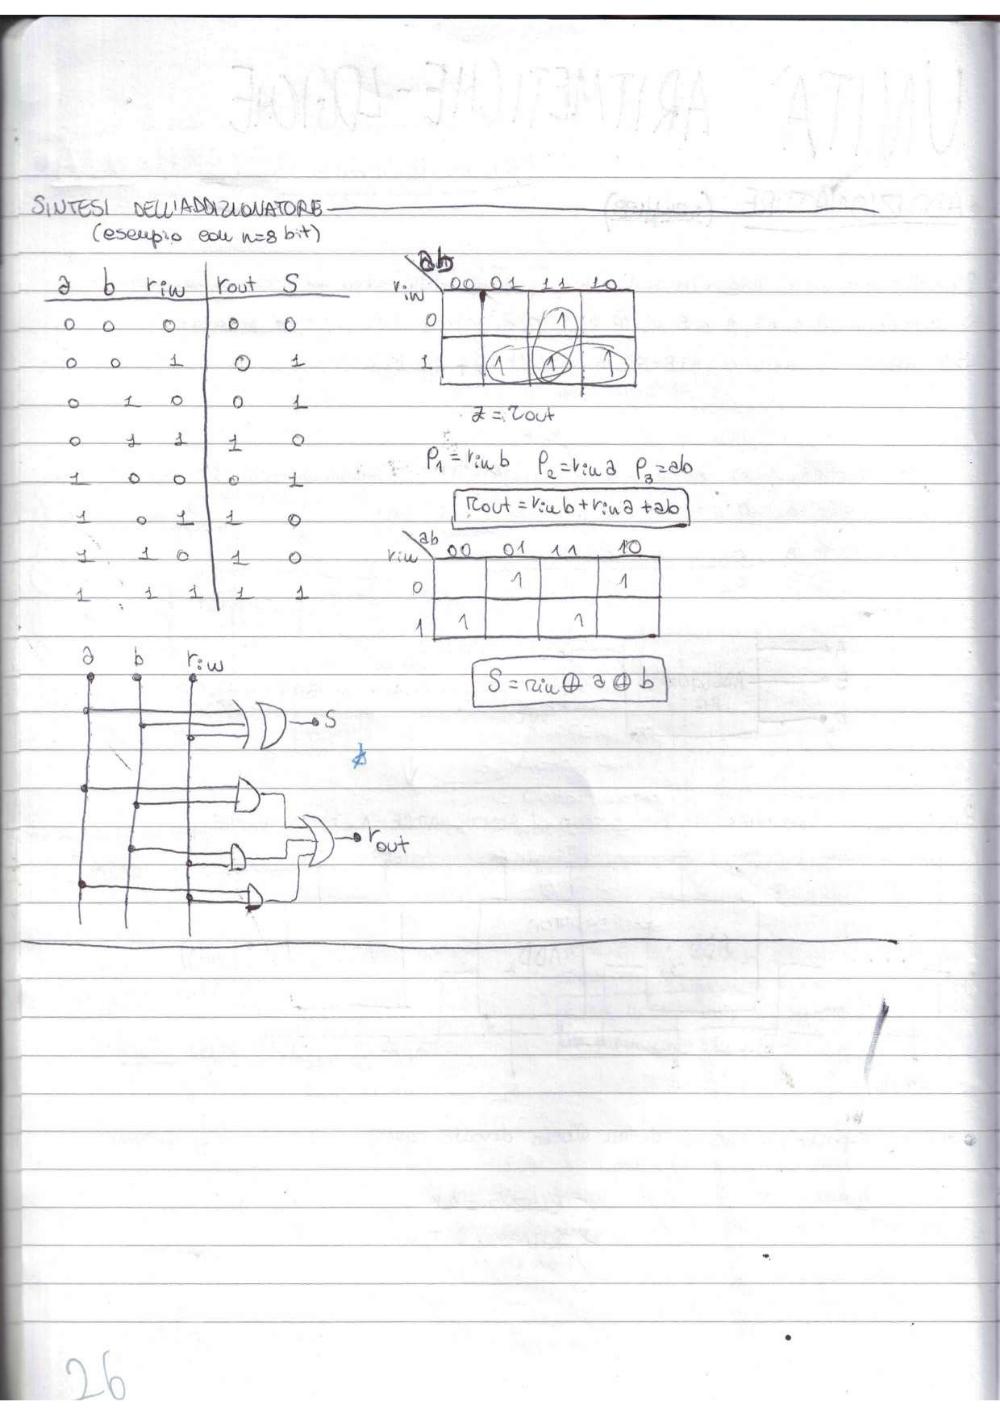 SINTESI DELL'ADDIZIONATORE
(esempio con n=8 bit)
a b rin rout S
0 0 0 0 0
0 0 1 0 1
0 1 0 0 1
0 1 1 1 0
1 0 0 0 1
1 0 1 1 0
1 1 0 1 0
1 1 1 1 1
ab
rin 00 01 11 10
0 1
1 1 1 1
z = rout
P1 = rin b P2 = rin a P3 = ab
rout = rin b + rin a + ab
ab
rin 00 01 11 10
0 1 1
1 1 1
S = rin ⊕ a ⊕ b
a b rin
S
rout
26